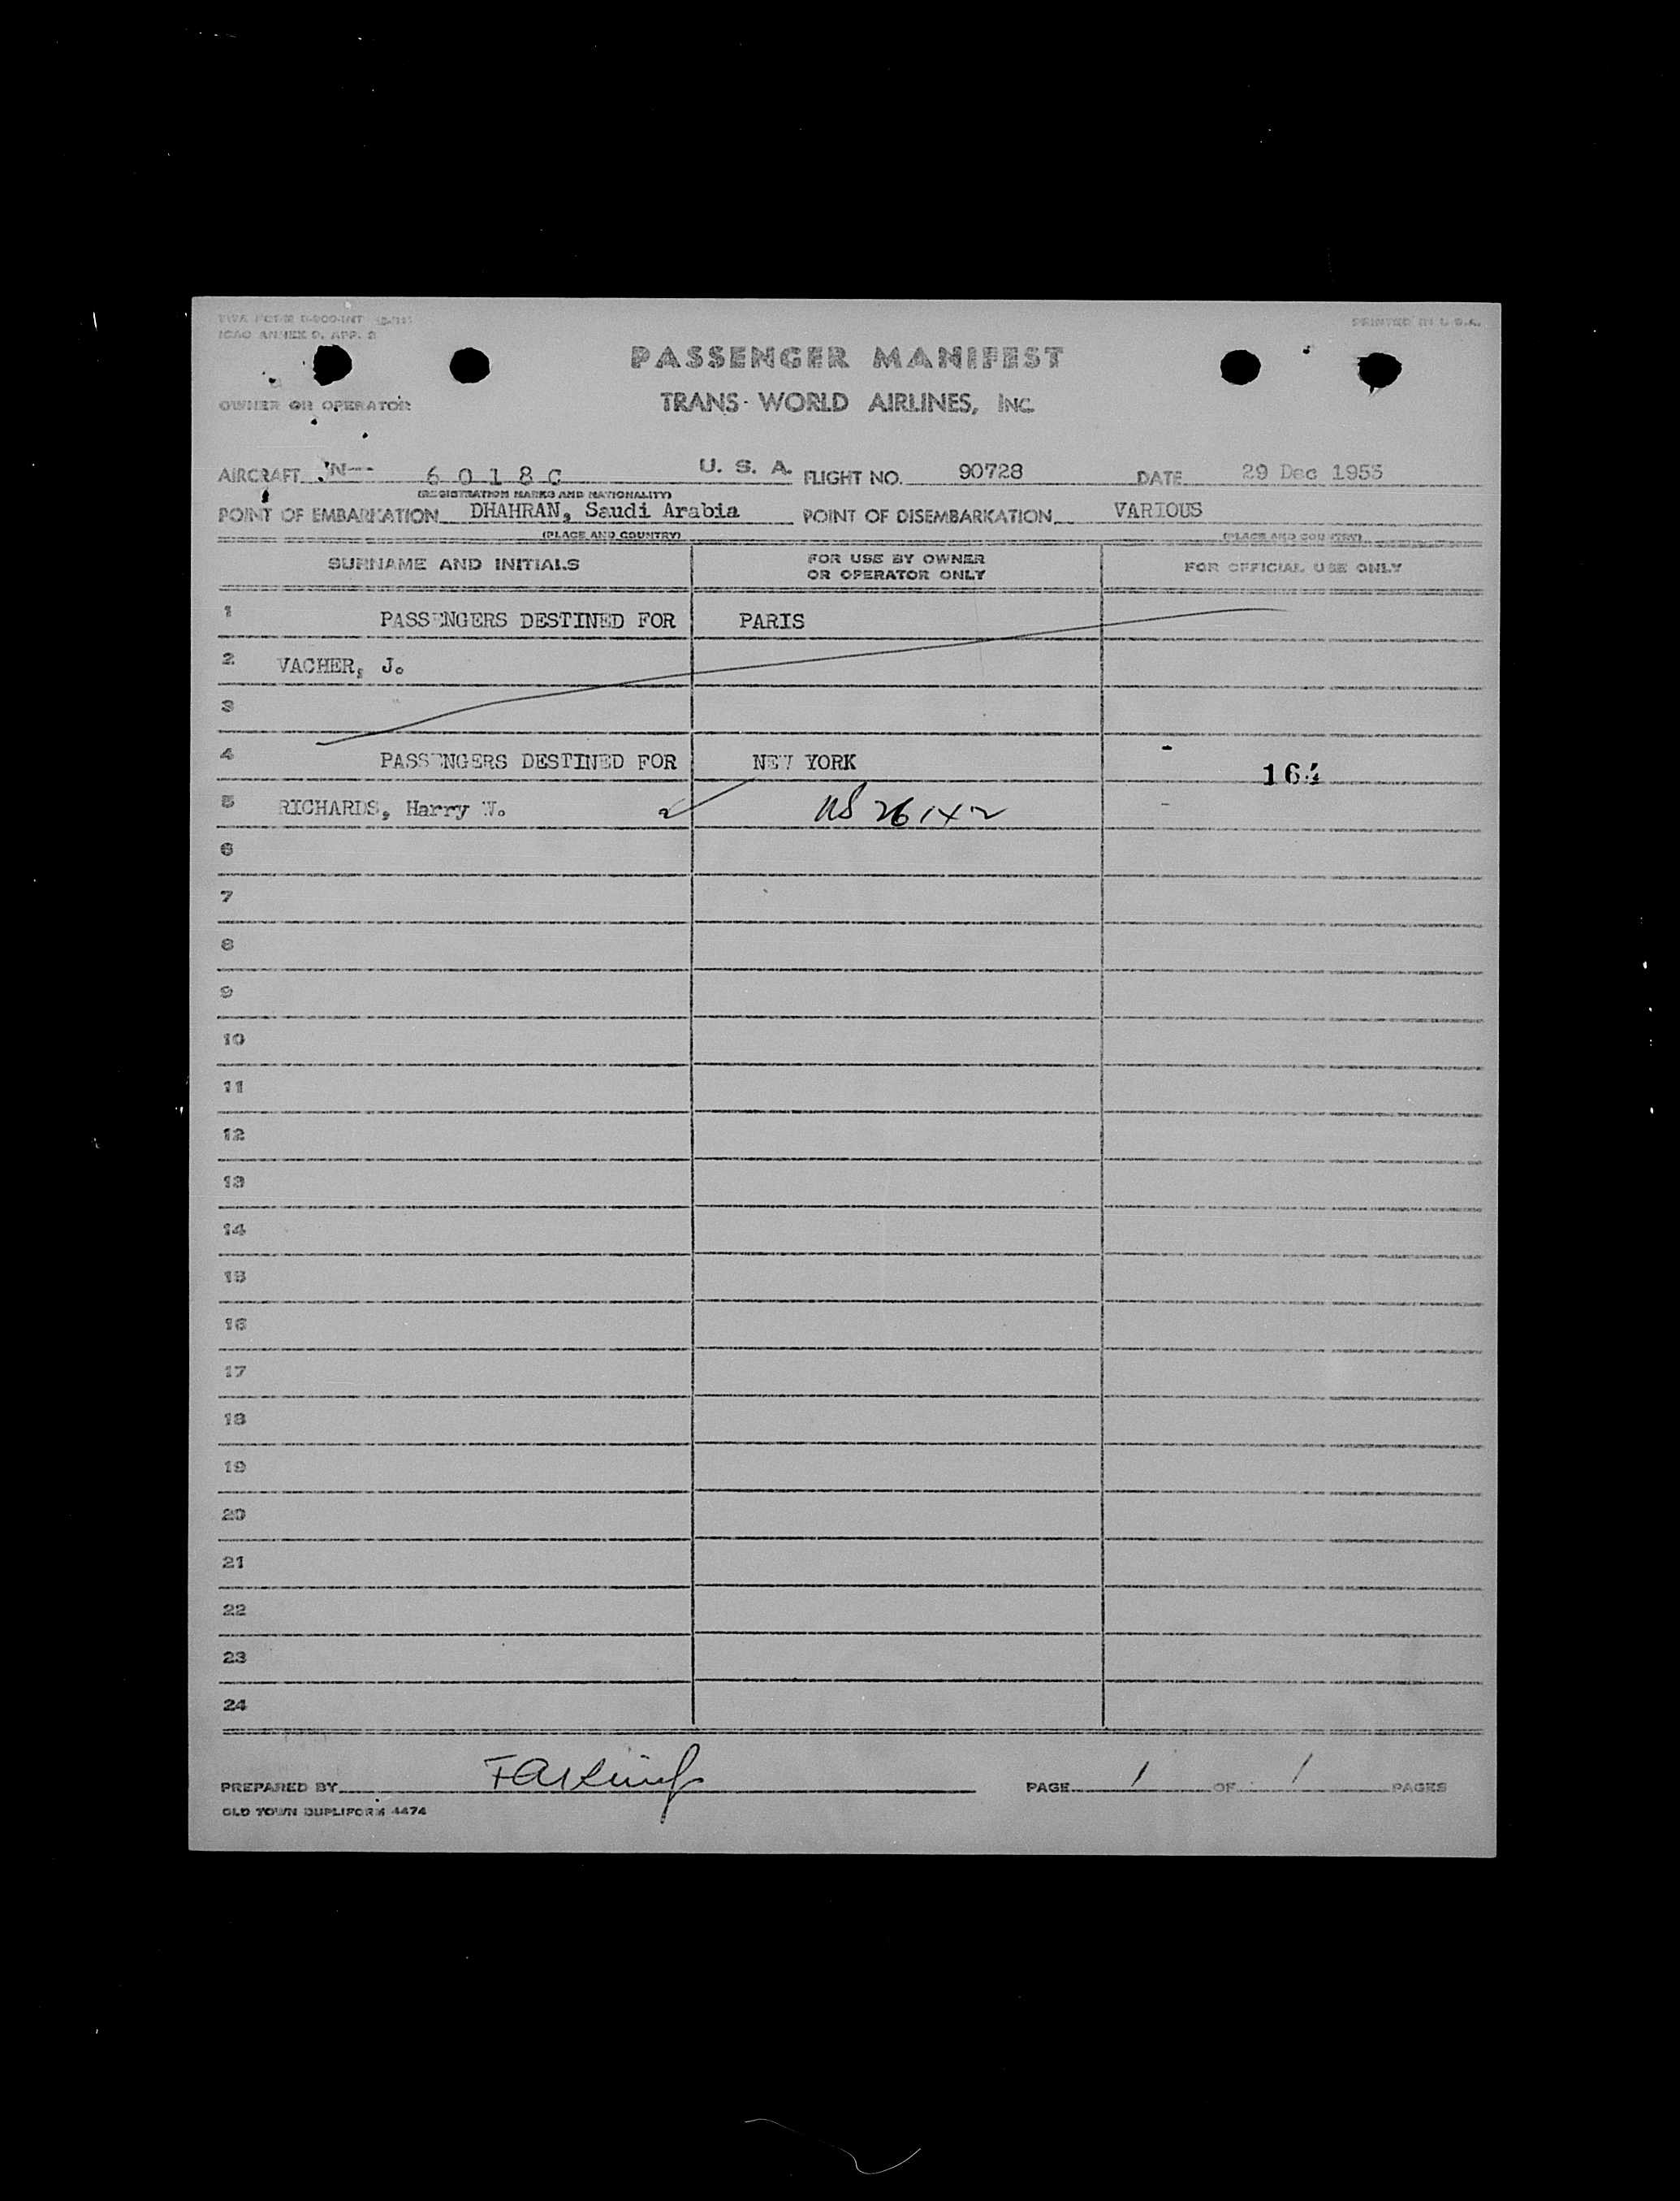 ICAO ANNEX 9, APP. 2
PRINTED IN U.S.A.
PASSENGER MANIFEST
OWNER OR OPERATOR
TRANS WORLD AIRLINES, INC.
AIRCRAFT N-- 6 0 1 8 C U. S. A. FLIGHT NO. 90728 DATE 29 Dec 1955
(REGISTRATION MARKS AND NATIONALITY)
POINT OF EMBARKATION DHAHRAN, Saudi Arabia POINT OF DISEMBARKATION VARIOUS
(PLACE AND COUNTRY) (PLACE AND COUNTRY)
SURNAME AND INITIALS FOR USE BY OWNER OR OPERATOR ONLY FOR OFFICIAL USE ONLY
1 PASSENGERS DESTINED FOR PARIS
2 VACHER, J.
3
4 PASSENGERS DESTINED FOR NEW YORK 164
5 RICHARDS, Harry W. US 26142
6
7
8
9
10
11
12
13
14
15
16
17
18
19
20
21
22
23
24
PREPARED BY PAGE 1 OF 1 PAGES
OLD TOWN DUPLIFORM 4474